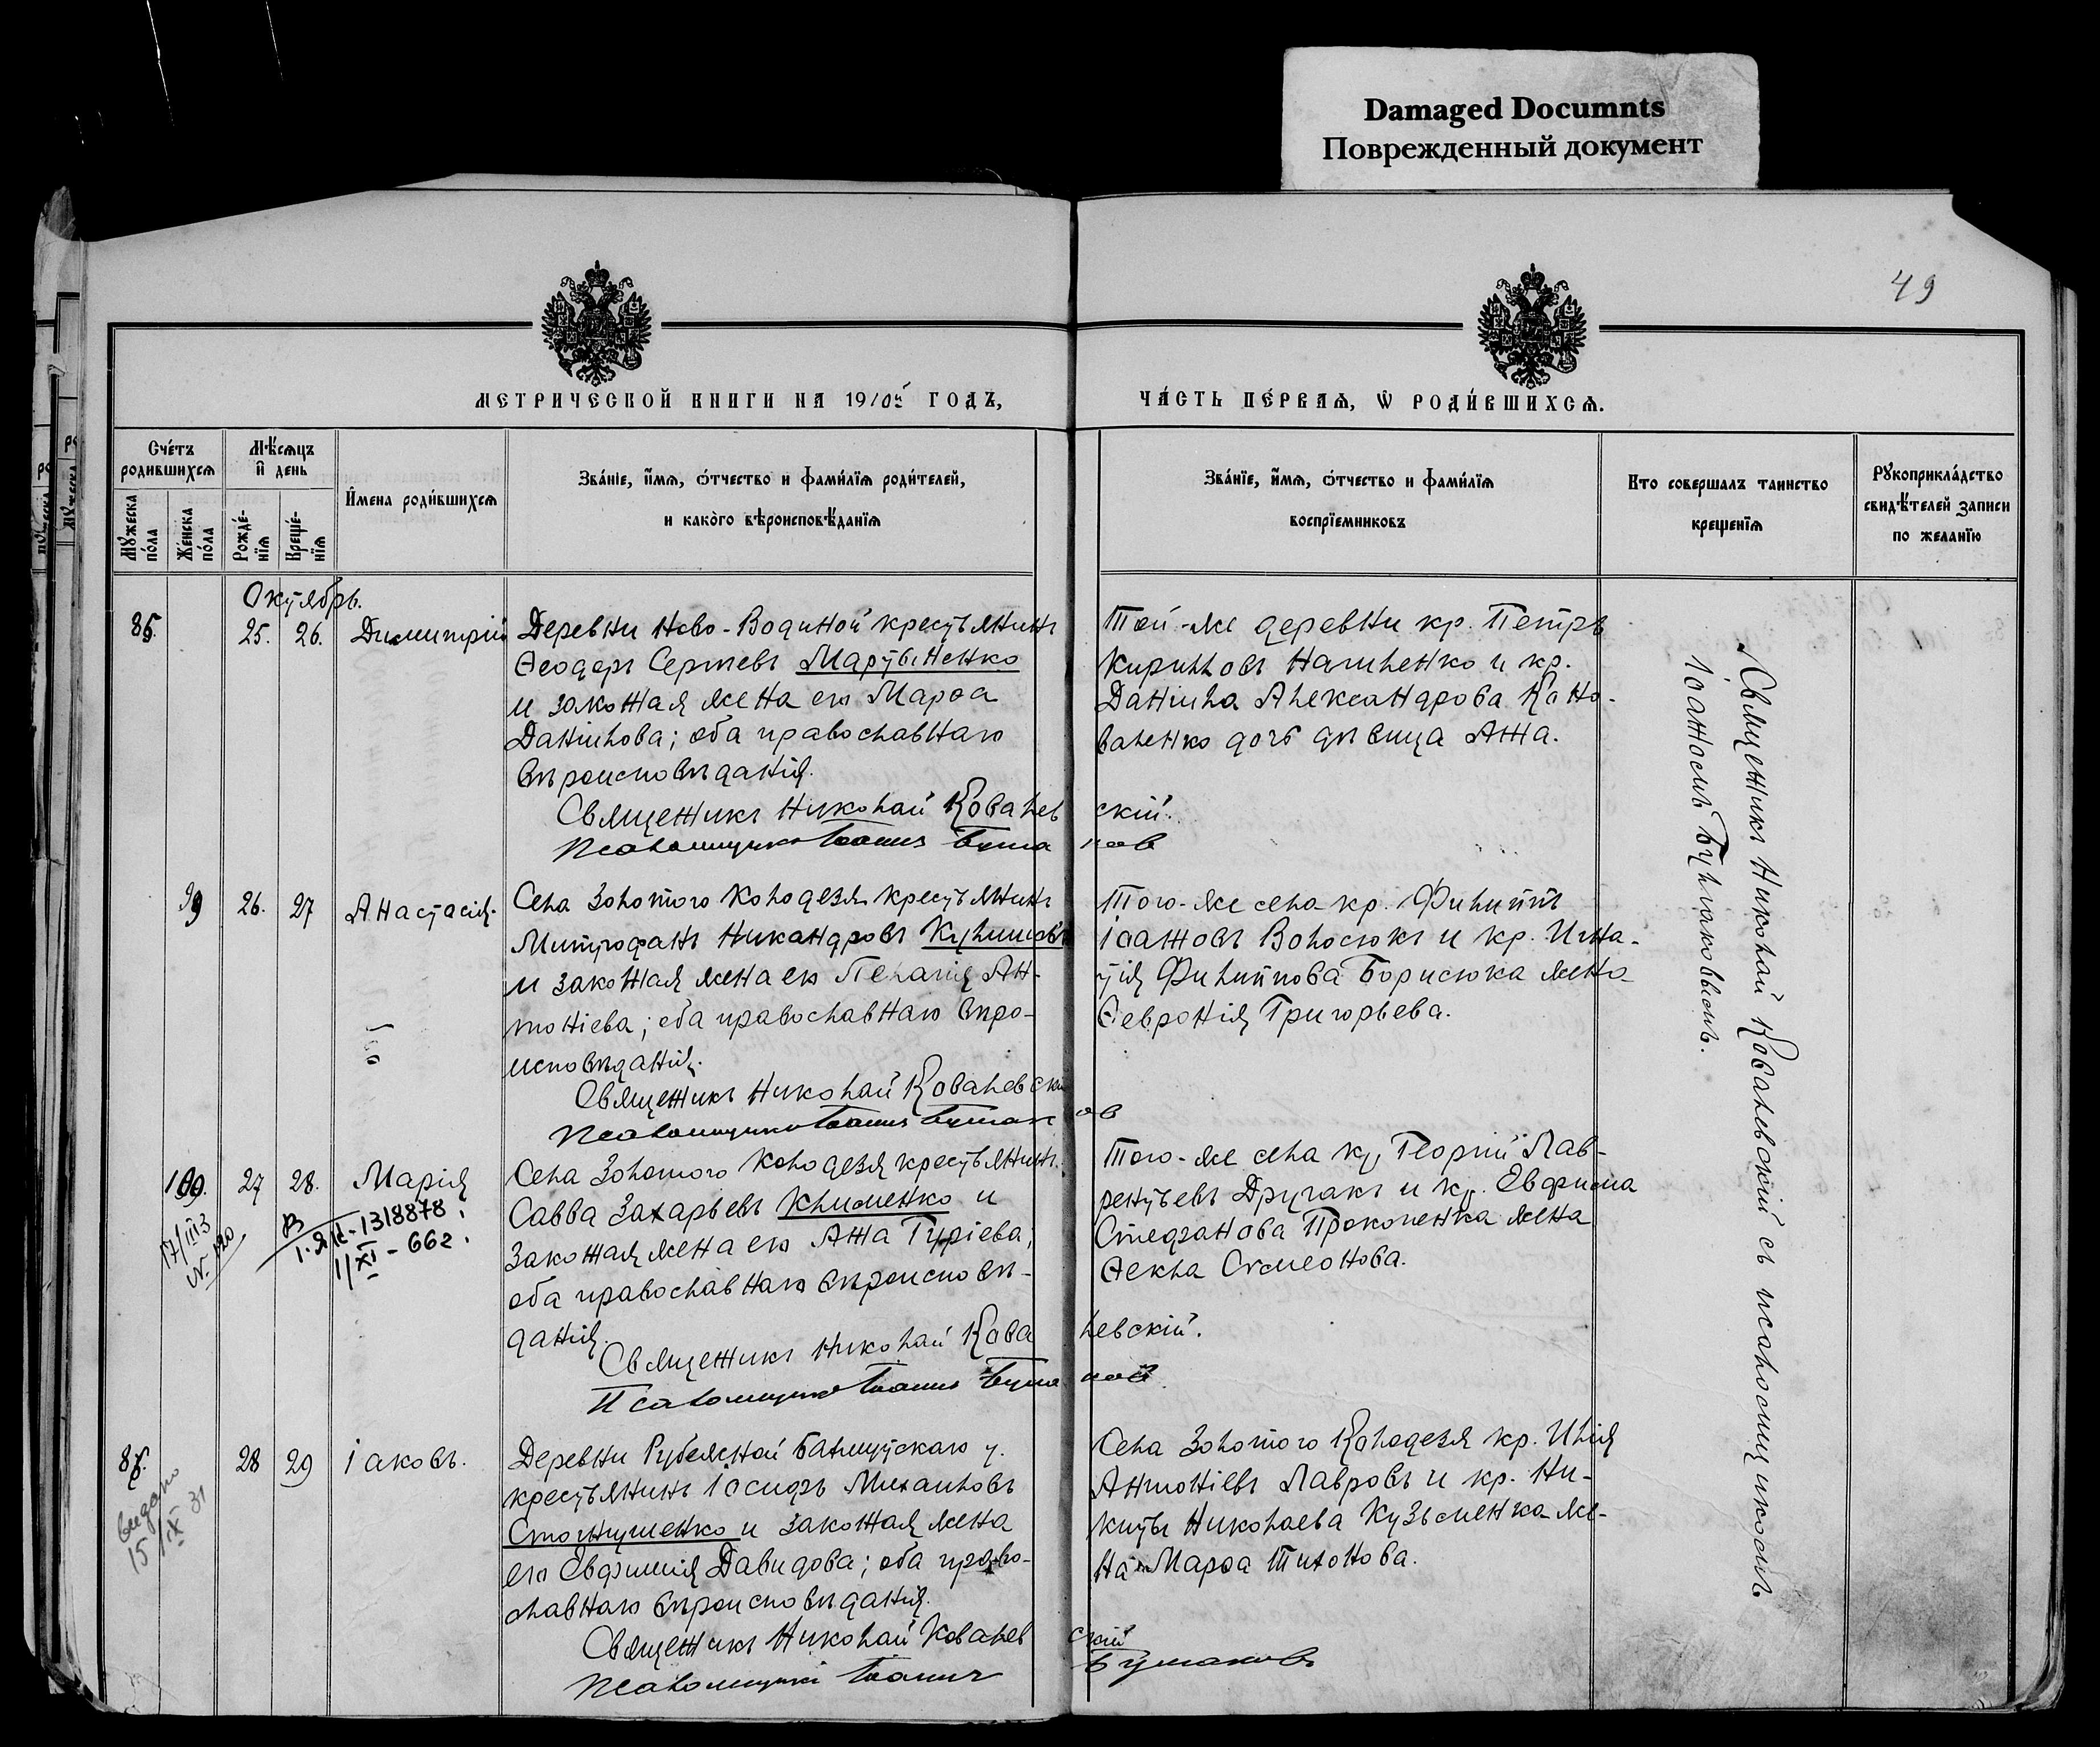 Damaged Documnts
Поврежденный документ
49
МЕТРИЧЕСКОЙ КНИГИ НА 1905 ГОДЪ,
ЧАСТЬ ПЕРВАЯ, Ѡ РОДИВШИХСЯ.
Счетъ родившихся
Мꙋжеска пола
Женска пола
Мѣсяцъ и день
Рожденія
Крещенія
Имена родившихся
Званіе, имя, отчество и фамилія родителей,
и какого вѣроисповѣданія
Званіе, имя, отчество и фамилія
воспріемниковъ
Кто совершалъ таинство
крещенія
Рꙋкоприкладство
свидѣтелей записи
по желанію
Октябрь.
85.
25. 26.
Димитрій
Деревни Ново-Водиной крестьянинъ
Ѳеодоръ Сергѣевъ Мартыненко
и законная жена его Марѳа
Даніилова; оба православнаго
вѣроисповѣданія.
Священникъ Николай Ковалевскій.
Псаломщикъ Іоаннъ
Той-же деревни кр. Петръ
Кирилловъ и кр.
Даніила Александрова Коно-
валенко дочь дѣвица Анна.
99
26. 27
Анастасія.
Села Золотого Колодезя крестьянинъ
Митрофанъ Никандровъ
и законная жена его Пелагія Ан-
тоніева; оба православнаго вѣро-
исповѣданія.
Священникъ Николай Ковалевскій
Псаломщикъ Іоаннъ
Того-же села кр. Филиппъ
Іоанновъ Волосюкъ и кр. Игна-
тія Филиппова Борисюка жена
Ѳевронія Григорьева.
100.
27 28.
Марія
17/III 13
№ 120
1.ЯК-1318878
1/XI-66г.
Села Золотого Колодезя крестьянинъ
Савва Захарьевъ Клименко и
законная жена его Анна Гуріева;
оба православнаго вѣроисповѣ-
данія.
Священникъ Николай Ковалевскій.
Псаломщикъ Іоаннъ
Того-же села кр. Георгій Лав-
рентьевъ Другакъ и кр. Евфима
Стефанова Прокопенка жена
Ѳекла Симеонова.
86.
28 29
Іаковъ.
видано
15/IX 31
Деревни Рубежной Бахмутскаго у.
крестьянинъ Іосифъ Михаиловъ
Стогнушенко и законная жена
его Евфимія Давидова; оба право-
славнаго вѣроисповѣданія.
Священникъ Николай Ковалевскій
Псаломщикъ Іоаннъ
Села Золотого Колодезя кр. Илія
Антоніевъ Лавровъ и кр. Ни-
киты Николаева Кузьменка же-
на Марѳа Тихонова.
Священникъ Николай Ковалевскій съ псаломщикомъ
Іоанномъ